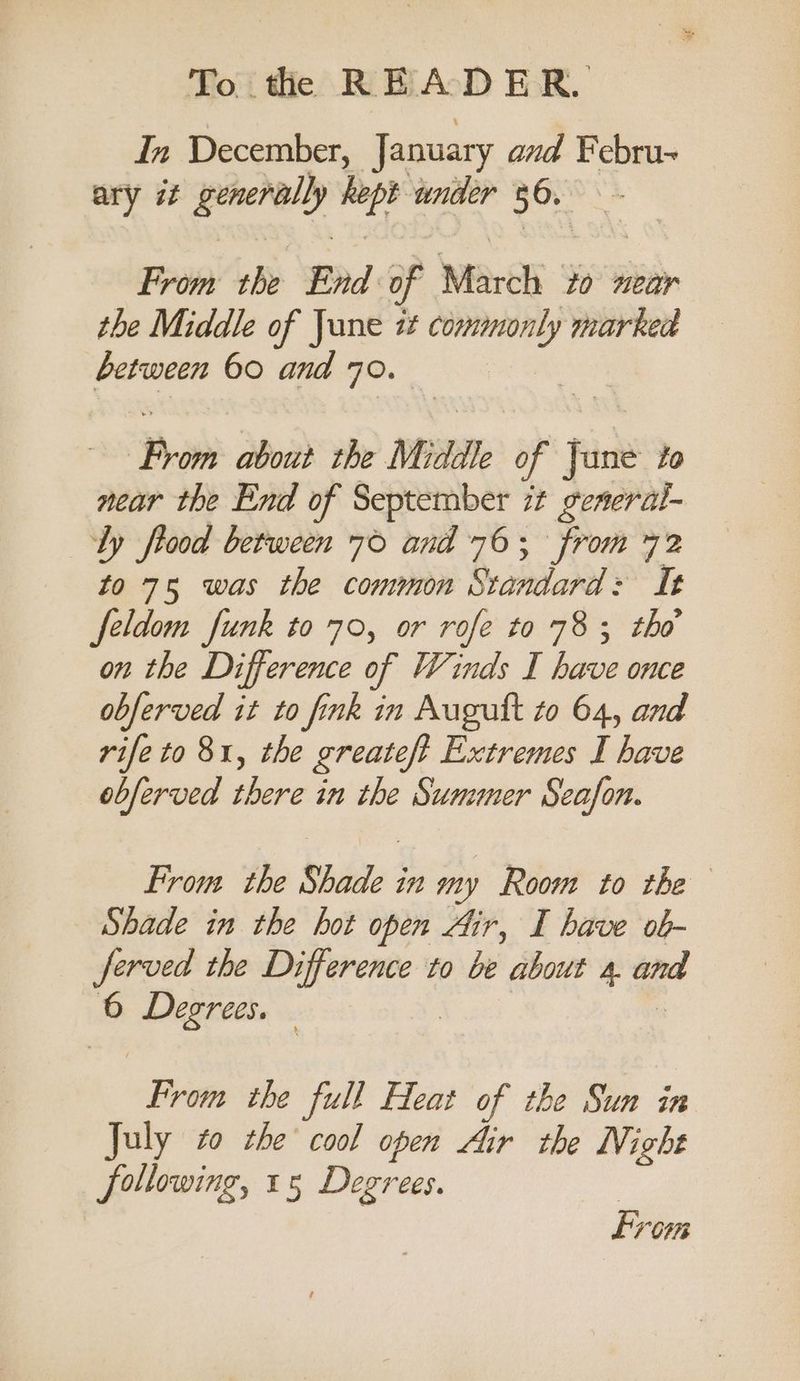 To the READER.
In December, January and Febru-
ary it generally kept under 56.
From the End of March to near
the Middle of June it commonly marked
between 60 and 70.
From about the Middle of June to
near the End of September it general-
ly ſtood between 70 and 76; from 72
to 75 was the common Standard: It
ſeldom ſunk to 70, or roſe to 78; tho'
on the Difference of Winds I have once
obſerved it to ſink in Auguſt to 64, and
riſe to 81, the greateſt Extremes I have
obſerved there in the Summer Seaſon.
From the Shade in my Room to the
Shade in the hot open Air, I have ob-
ſerved the Difference to be about 4 and
6 Degrees.
From the full Heat of the Sun in
July to the cool open Air the Night
following, 15 Degrees.
From